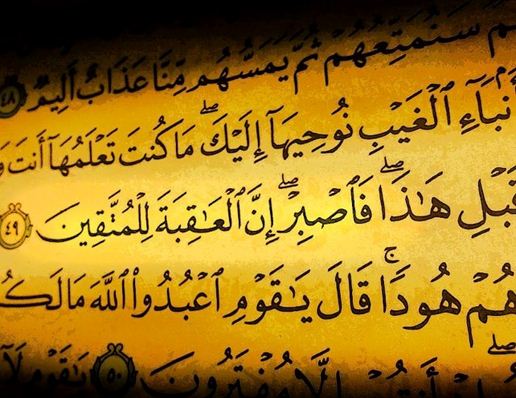 سَنُمَتِّعُهُمْ ثُمَّ يَمَسُّهُم مِّنَّا عَذَابٌ أَلِيمٌ ٤٨
أَنۢبَآءِ ٱلْغَيْبِ نُوحِيهَآ إِلَيْكَ ۖ مَا كُنتَ تَعْلَمُهَآ أَنتَ وَ
قَبْلِ هَـٰذَا ۖ فَٱصْبِرْ ۖ إِنَّ ٱلْعَـٰقِبَةَ لِلْمُتَّقِينَ ٤٩
هُمْ هُودًا ۚ قَالَ يَـٰقَوْمِ ٱعْبُدُوا۟ ٱللَّهَ مَا لَكُ
أَنتُمْ إِلَّا مُفْتَرُونَ ٥٠ يَـٰقَوْمِ لَآ